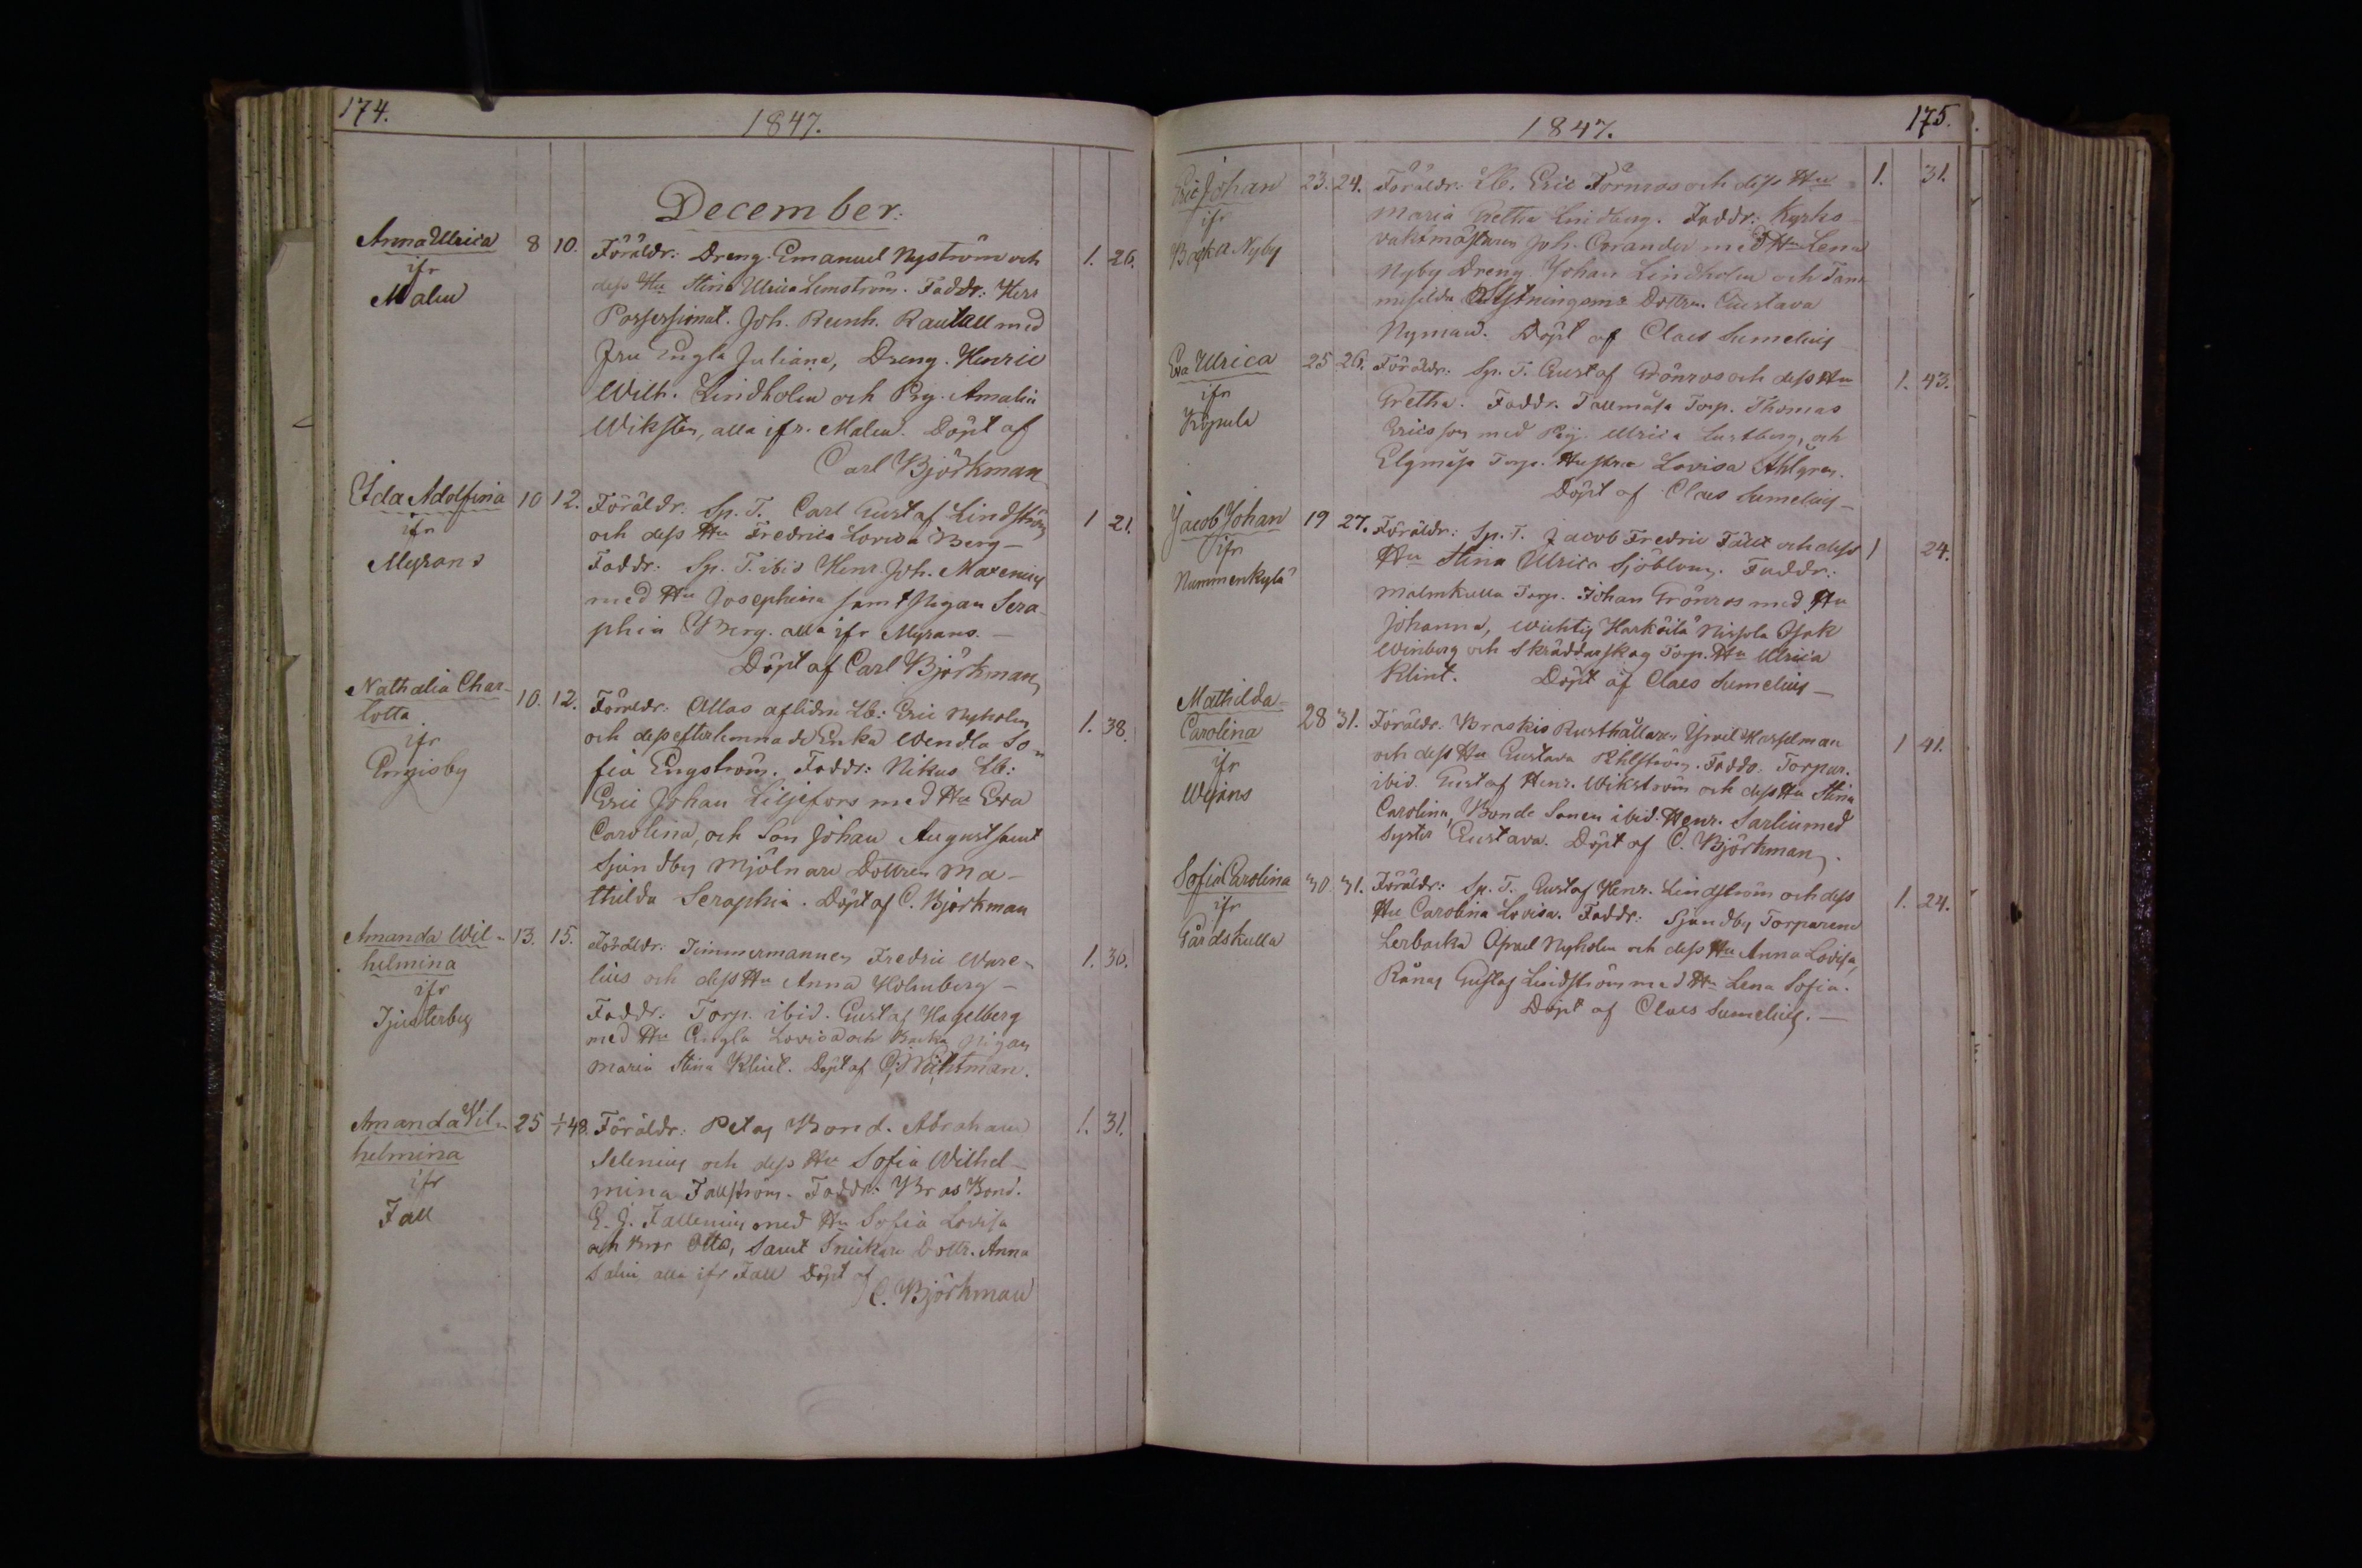 174.
1847.
December.
Anna Ulrica
ifr
Malm
8 10.
Föräldr: Dreng. Emanuel Nyström och
dess Hu Stina Ulrica Lemström. Faddr: Herr
Possessionat. Joh. Reinh. Rautell med
Fru Engla Juliana, Dreng. Henric
Wilh. Lindholm och Pig. Amalia
Wiksten, alla ifr. Malm. Döpt af
Carl Björkman
1. 26.
Ida Adolfina
ifr
Myrans
10 12.
Föräldr: Sp. T. Carl Gustaf Lindström
och dess Hu Fredrica Lovisa Berg
Faddr: Sp. T. ibid Henr. Joh. Maxenius
med Hu Josephina samt Pigan Sera-
phia Berg. alla ifr Myrans. —
Döpt af Carl Björkman
1 21.
Nathalia Char-
lotta
ifr
Engisby
10. 12.
Föräldr: Allas aflidne Lb: Eric Nyholm
och dess efterlemnade Enka Wendla So-
fia Engström. Faddr: Nikus Lb:
Eric Johan Liljefors med Hu Eva
Carolina, och Son Johan August samt
Sjundby Mjölnare Dottren Ma-
thilda Seraphia. Döpt af C. Björkman
1. 38.
Amanda Wil-
helmina
ifr
Tjusterby
13. 15.
Föräldr: Timmermannen Fredric Ware-
lius och dess Hu Anna Holmberg —
Faddr: Torp. ibid. Gustaf Hagelberg
med Hu Engla Lovisa och Backa Pigan
Maria Stina Klint. Döpt af
1. 36.
Amanda Wil-
helmina
ifr
Fall
25 1/1 48.
Föräldr: Petas Bond. Abraham
Selenius och dess Hu Sofia Wilhel-
mina Fallström. Faddr: Bras Bond.
E. J. Fallenius med Hu Sofia Lovisa
och Bror Otto, samt Snickare Dottr. Anna
alla ifr Fall Döpt af
C. Björkman
1. 31.
175.
1847.
Eric Johan
ifr
Backa Nyby
23. 24.
Föräldr: Lb. Eric Törnroos och dess Hu
Maria Gretha Lindberg. Faddr: Kyrko-
vaktmästaren Joh. Corander med Hu Lena
Nyby Dreng. Johan Lindholm och
Dottren Gustava
Nyman. Döpt af Claes Sumelius
1. 31.
Eva Ulrica
ifr
Köpula
25 26.
Föräldr: Sp. T. Gustaf Grönroos och dess Hu
Gretha. Faddr. Tallmåsa Torp. Thomas
Ericsson med Pig. Ulrica Lustberg, och
Elgmåsa Torp. Hustru Lovisa Ahlgren.
Döpt af Claes Sumelius —
1. 43.
Jacob Johan
ifr
Nummenkylä
19 27.
Föräldr: Sp. T. Jacob Fredric Fält och dess
Hu Stina Ulrica Sjöblom. Faddr:
Malmkulla Torp. Johan Grönroos med Hu
Johanna, Wichtis Härköilä Nissola
Winberg och Skräddarskog Torp. Hu Ulrica
Klint. Döpt af Claes Sumelius —
1 24.
Mathilda
Carolina
ifr
Wejans
28 31.
Föräldr. Braskis Rusthållaren
och dess Hu Gustava Pihlström. Faddr. Torpar.
ibid. Gustaf Henr. Wikström och dess Hu Stina
Carolina, Bonde Sonen ibid. Henr. Sarlin med
Syster Gustava. Döpt af C. Björkman.
1 41.
Sofia Carolina
ifr
Gårdskulla
30 31.
Föräldr: Sp. T. Gustaf Henr. Lindström och dess
Hu Carolina Lovisa. Faddr: Sjundby Torparene
Lerbacka Israel Nyholm och dess Hu Anna Lovisa,
Rånäs Gustaf Lindström med Hu Lena Sofia.
Döpt af Claes Sumelius. —
1. 24.